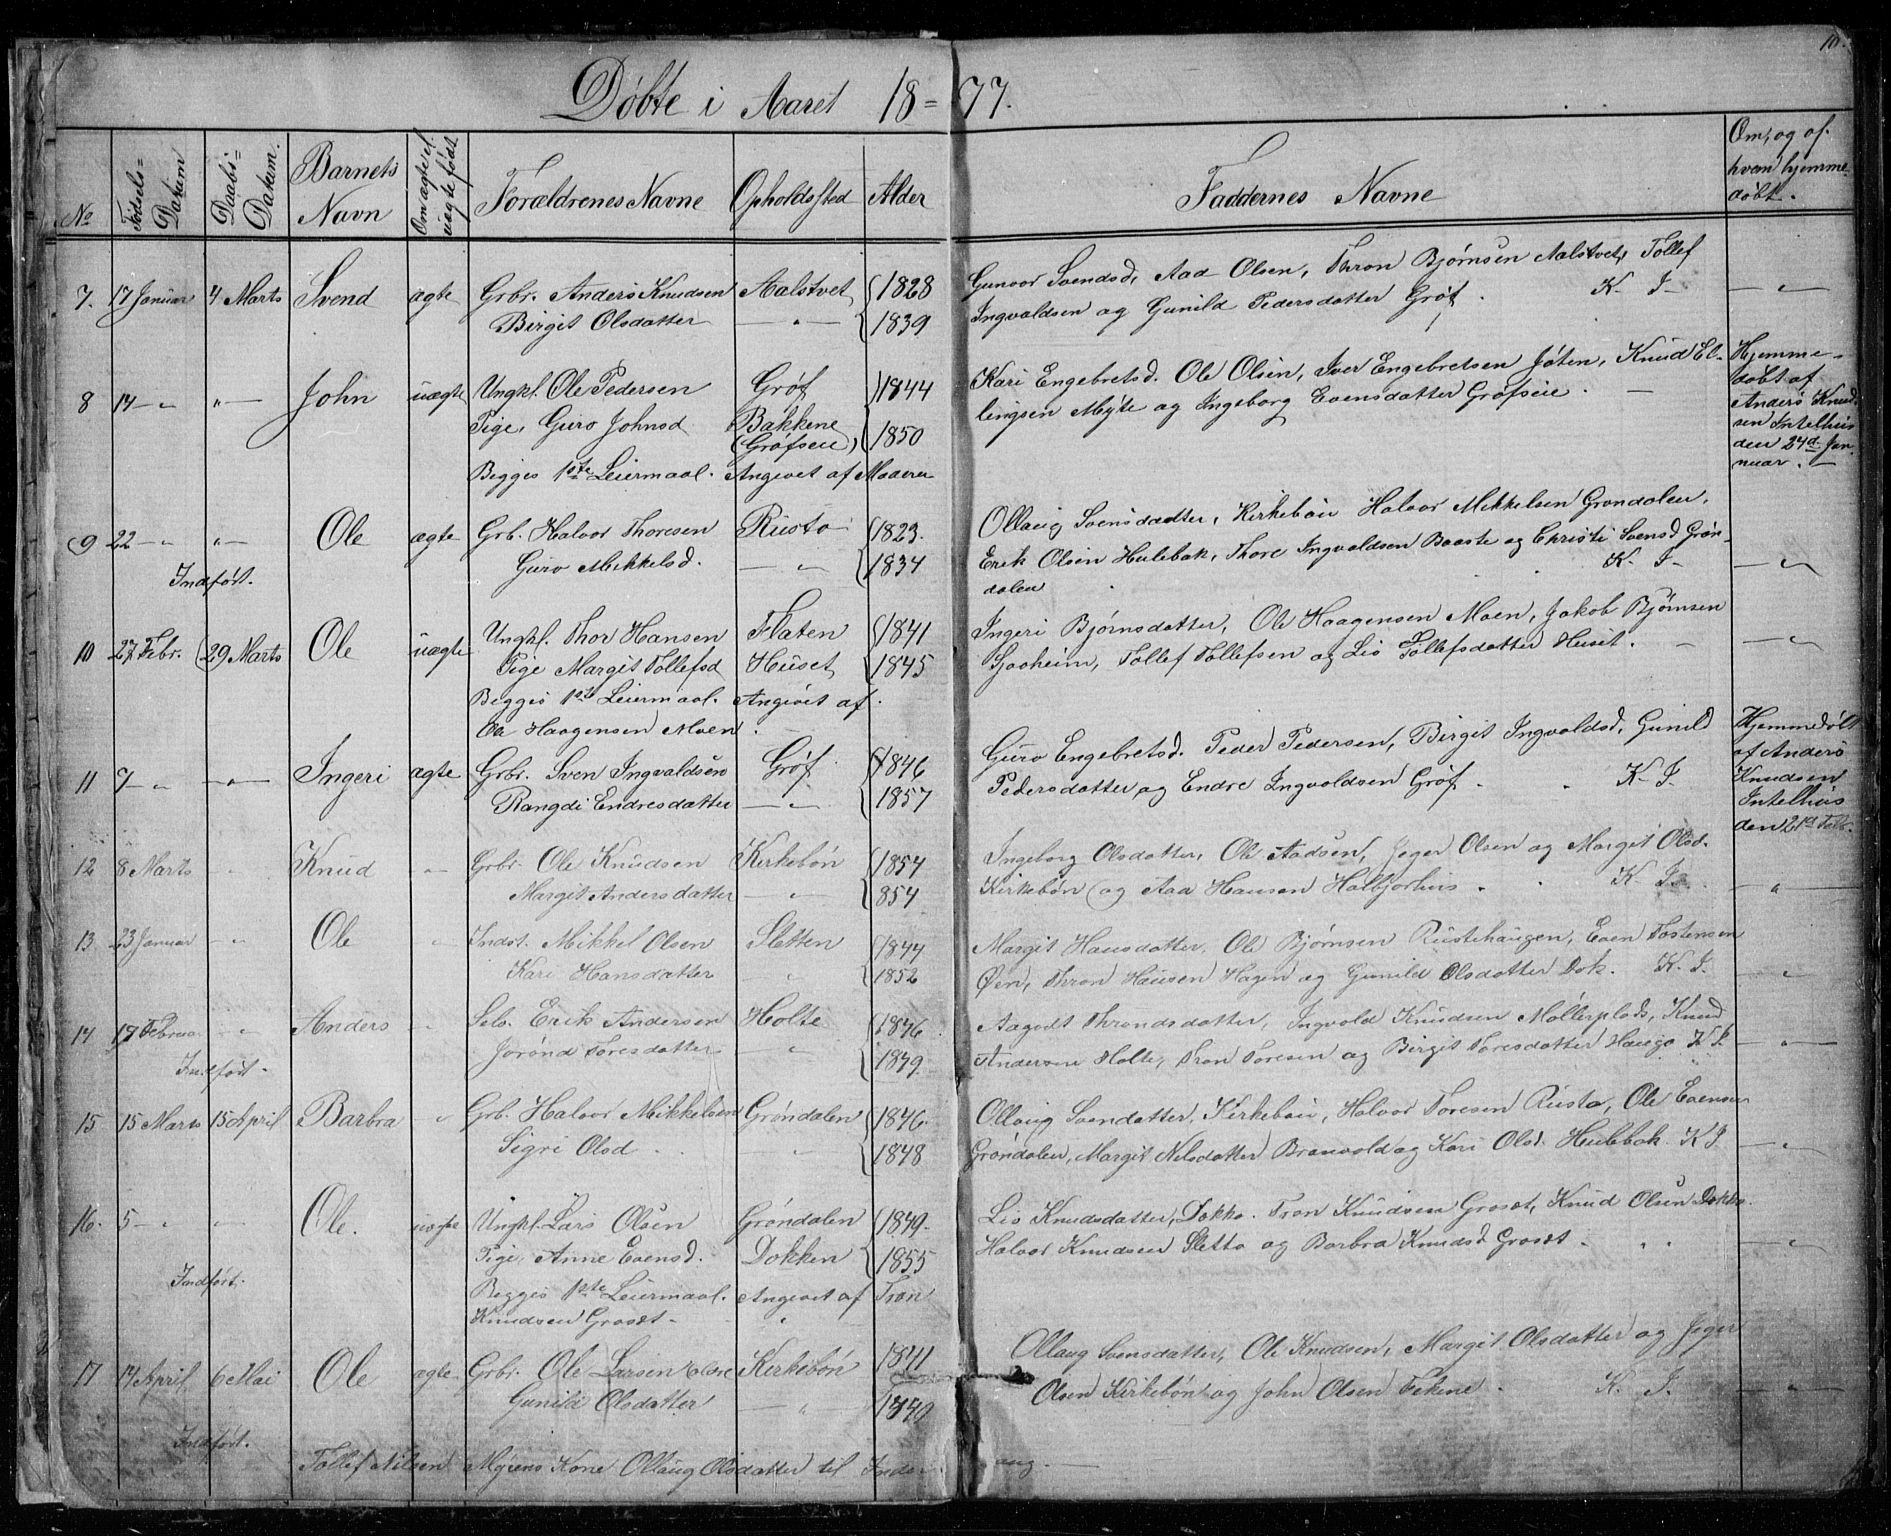 10.
Døbte i Aaret 18=77.
No
Fødsels=Datum
Daabs=Datum.
Barnets Navn
Om ægte el. uægte født
Forældrenes Navne
Opholdssted
Alder
Faddernes Navne
Om, og af hvem hjemmedøbt.
7. 17 Januar 4 Marts Svend ægte Grbr. Anders Knudsen Aalstvet 1828
Birgit Olsdatter — " — 1839
Gunvor Svendsd, Aad Olsen, Thron Bjørnsen Aalstvet, Tollef
Ingvaldsen og Gunild Pedersdatter Grøf. K. I. — " —
8 14 — " " — John uægte Ungkl. Ole Pedersen Grøf 1844
Pige, Guro Johnsd Bakkene (Grøfseie) 1850
Begges 1ste Leiermaal. Angivet af Moderen
Kari Engebretsd. Ole Olsen, Iver Engebretsen Jøten, Knud El-
lingsen Mÿte og Ingeborg Evensdatter Grøfseie. —
Hjemme-
døbt af
Anders Knud-
sen Intelhus
den 24d Jan-
nuar. —
9 22 — " " — Ole ægte Grb. Halvor Thoresen Rusto 1823.
Guro Mikkelsd. — " 1834
Indført.
Ollaug Svensdatter, Kirkebøn Halvor Mikkelsen Grøndalen,
Erik Olsen Hulebak, Thore Ingvaldsen Baaste og Christi Svensd Grøn-
dalen K. I. — " —
10 27 Febr. 29 Marts Ole uægte Ungkl. Thor Hansen Flaten 1841
Pige Margit Tollefsd Huset 1845
Begges 1ste Leiermaal. Angivet af
Ole Haagensen Moen.
Ingeri Bjørnsdatter, Ole Haagensen Moen, Jakob Bjørnsen
Gaaheim, Tollef Tollefsen og Lis Tollefsdatter Huset. — — " —
11 7 — " — " — Ingeri ægte Grbr. Sven Ingvaldsen Grøf 1846
Rangdi Endresdatter — " — 1857
Guro Engebretsd. Peder Pedersen, Birgit Ingvaldsd, Gunild
Pedersdatter og Endre Ingvaldsen Grøf. K. I.
Hjemmedøbt
af Anders
Knudsen
Intelhus
den 21d Feb.
12 8 Marts " Knud " Grbr. Ole Knudsen Kirkebøn 1854
Margit Andersdatter — " — 854
Ingeborg Olsdatter, Ole Aadsen, Jeger Olsen og Margit Olsd.
Kirkebøn og Aad Hansen Halbjorhus. K. I. — " —
13. 23 Januar " Ole " Indst. Mikkel Olsen Sletten 1844
Kari Hansdatter " 1852
Margit Hansdatter, Ole Bjørnsen Rustehaugen, Even Tostensen
Øen, Thron Hansen Hagen og Gunild Olsdatter Dok. K. I. — " —
14 17 Februar " Anders " Selv. Erik Andersen Holte 1846
Jorønd Toresdatter — " — 1849
Indført.
Aagodt Throndsdatter, Ingvald Knudsen Møllerplads, Knud
Andersen Holte, Tron Toresen og Birgit Toresdatter Hauge K I. — " —
15 15 Marts 15 April Barbra " Grb. Halvor Mikkelsen Grøndalen 1846.
Sigri Olsd. " 1848
Ollaug Svendatter, Kirkebøn, Halvor Toresen Rusto, Ole Evensen
Grøndalen, Margit Nelsdatter Branvold og Kari Olsd. Hulebak. K I. — " —
16. 5 — " — " — Ole. uægte Ungkl. Lars Olsen Grøndalen 1849.
Pige, Anne Evensd. Dokken 1855
Indført.
Begges 1ste Leiermaal. Angivet af Tron
Knudsen Grosæt. "
Lis Knudsdatter, Dokko. Tron Knudsen Grosæt, Knud Olsen Dokko
Halvor Knudsen Sletto og Barbra Knudsd Grosæt. " " — " —
17 14 April 6 Mai Ole ægte Grbr. Ole Larsen Kirkebøn 1841
Gunild Olsdatter — " — 1849
Indført.
Ollaug Svensdatter, Ole Knudsen, Margit Olsdatter og Jeger
Olsen Kirkebøn og John Olsen Fekene. K. I. — " —
Tollef Nilsen Myrens Kone Ollaug Olsdatter til